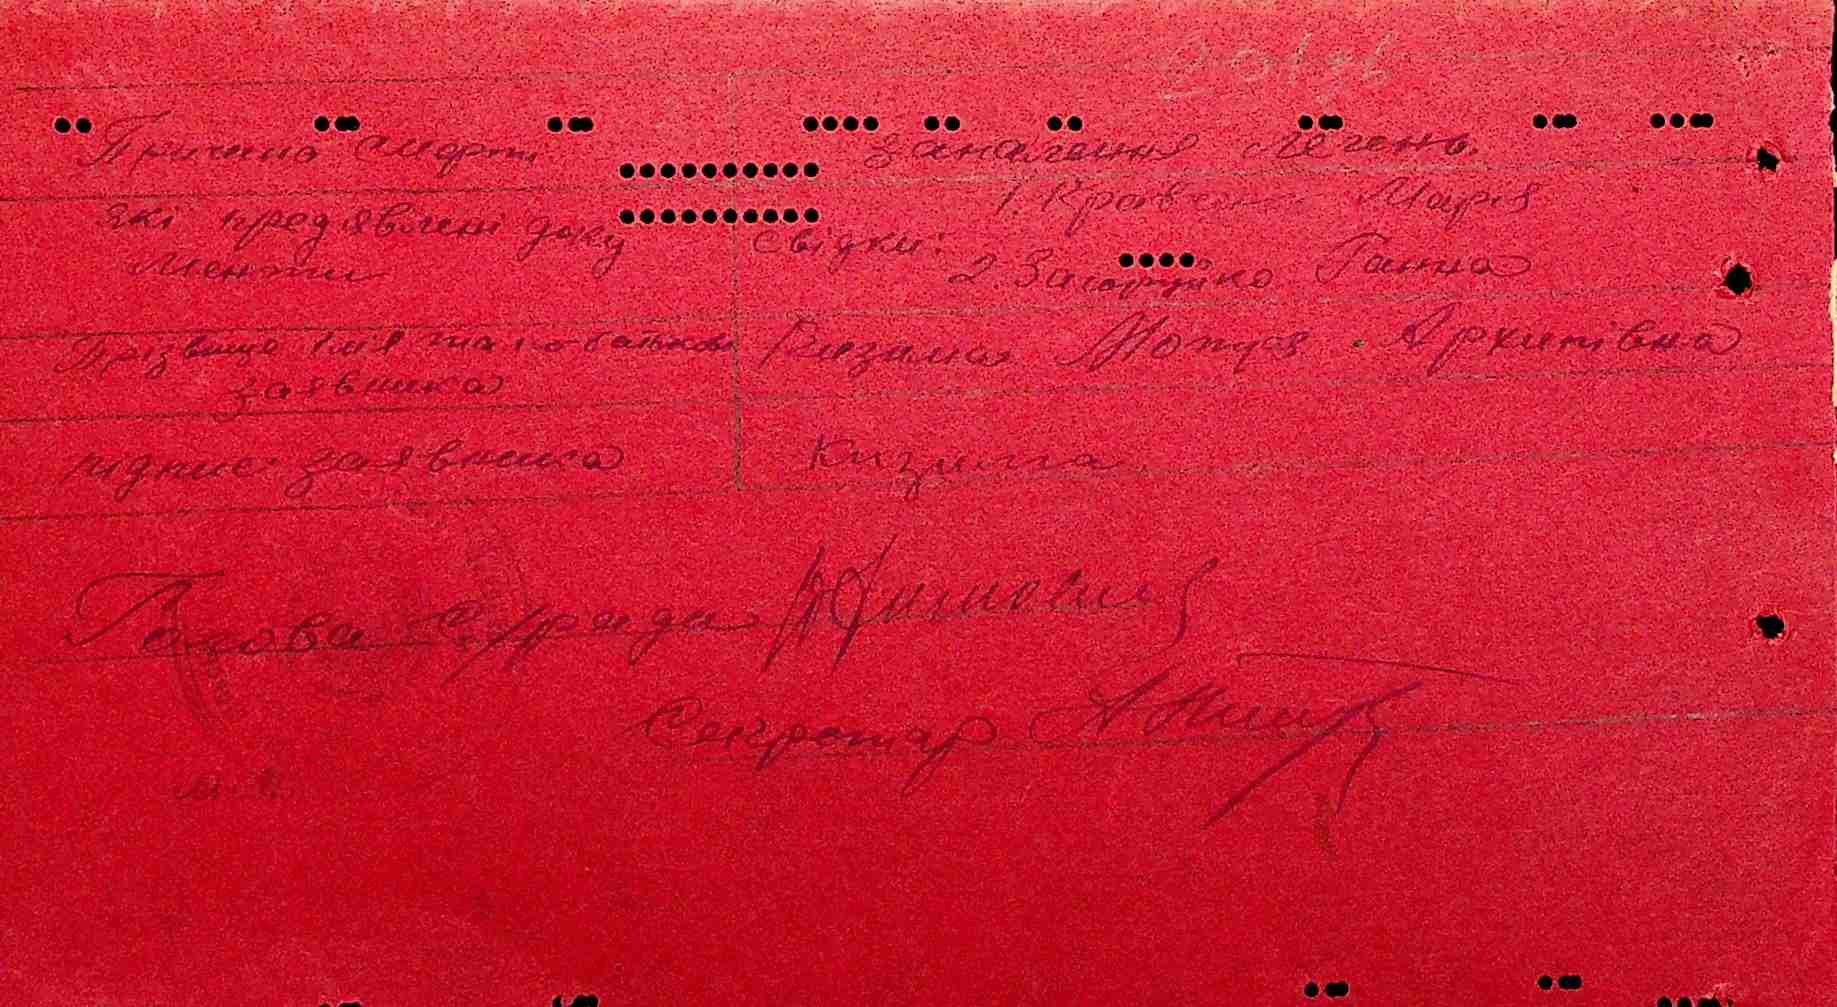 Причина смерти запалення легень.
які предявлені доку
менти
Свідки:
1. Кравченко Марія
2. Загоруйко Ганна
Прізвище імя та по батькові
заявника
Кизима Мотря Архипівна
підпис заявника Кизима
Голова с/ради
Секретар
м. п.